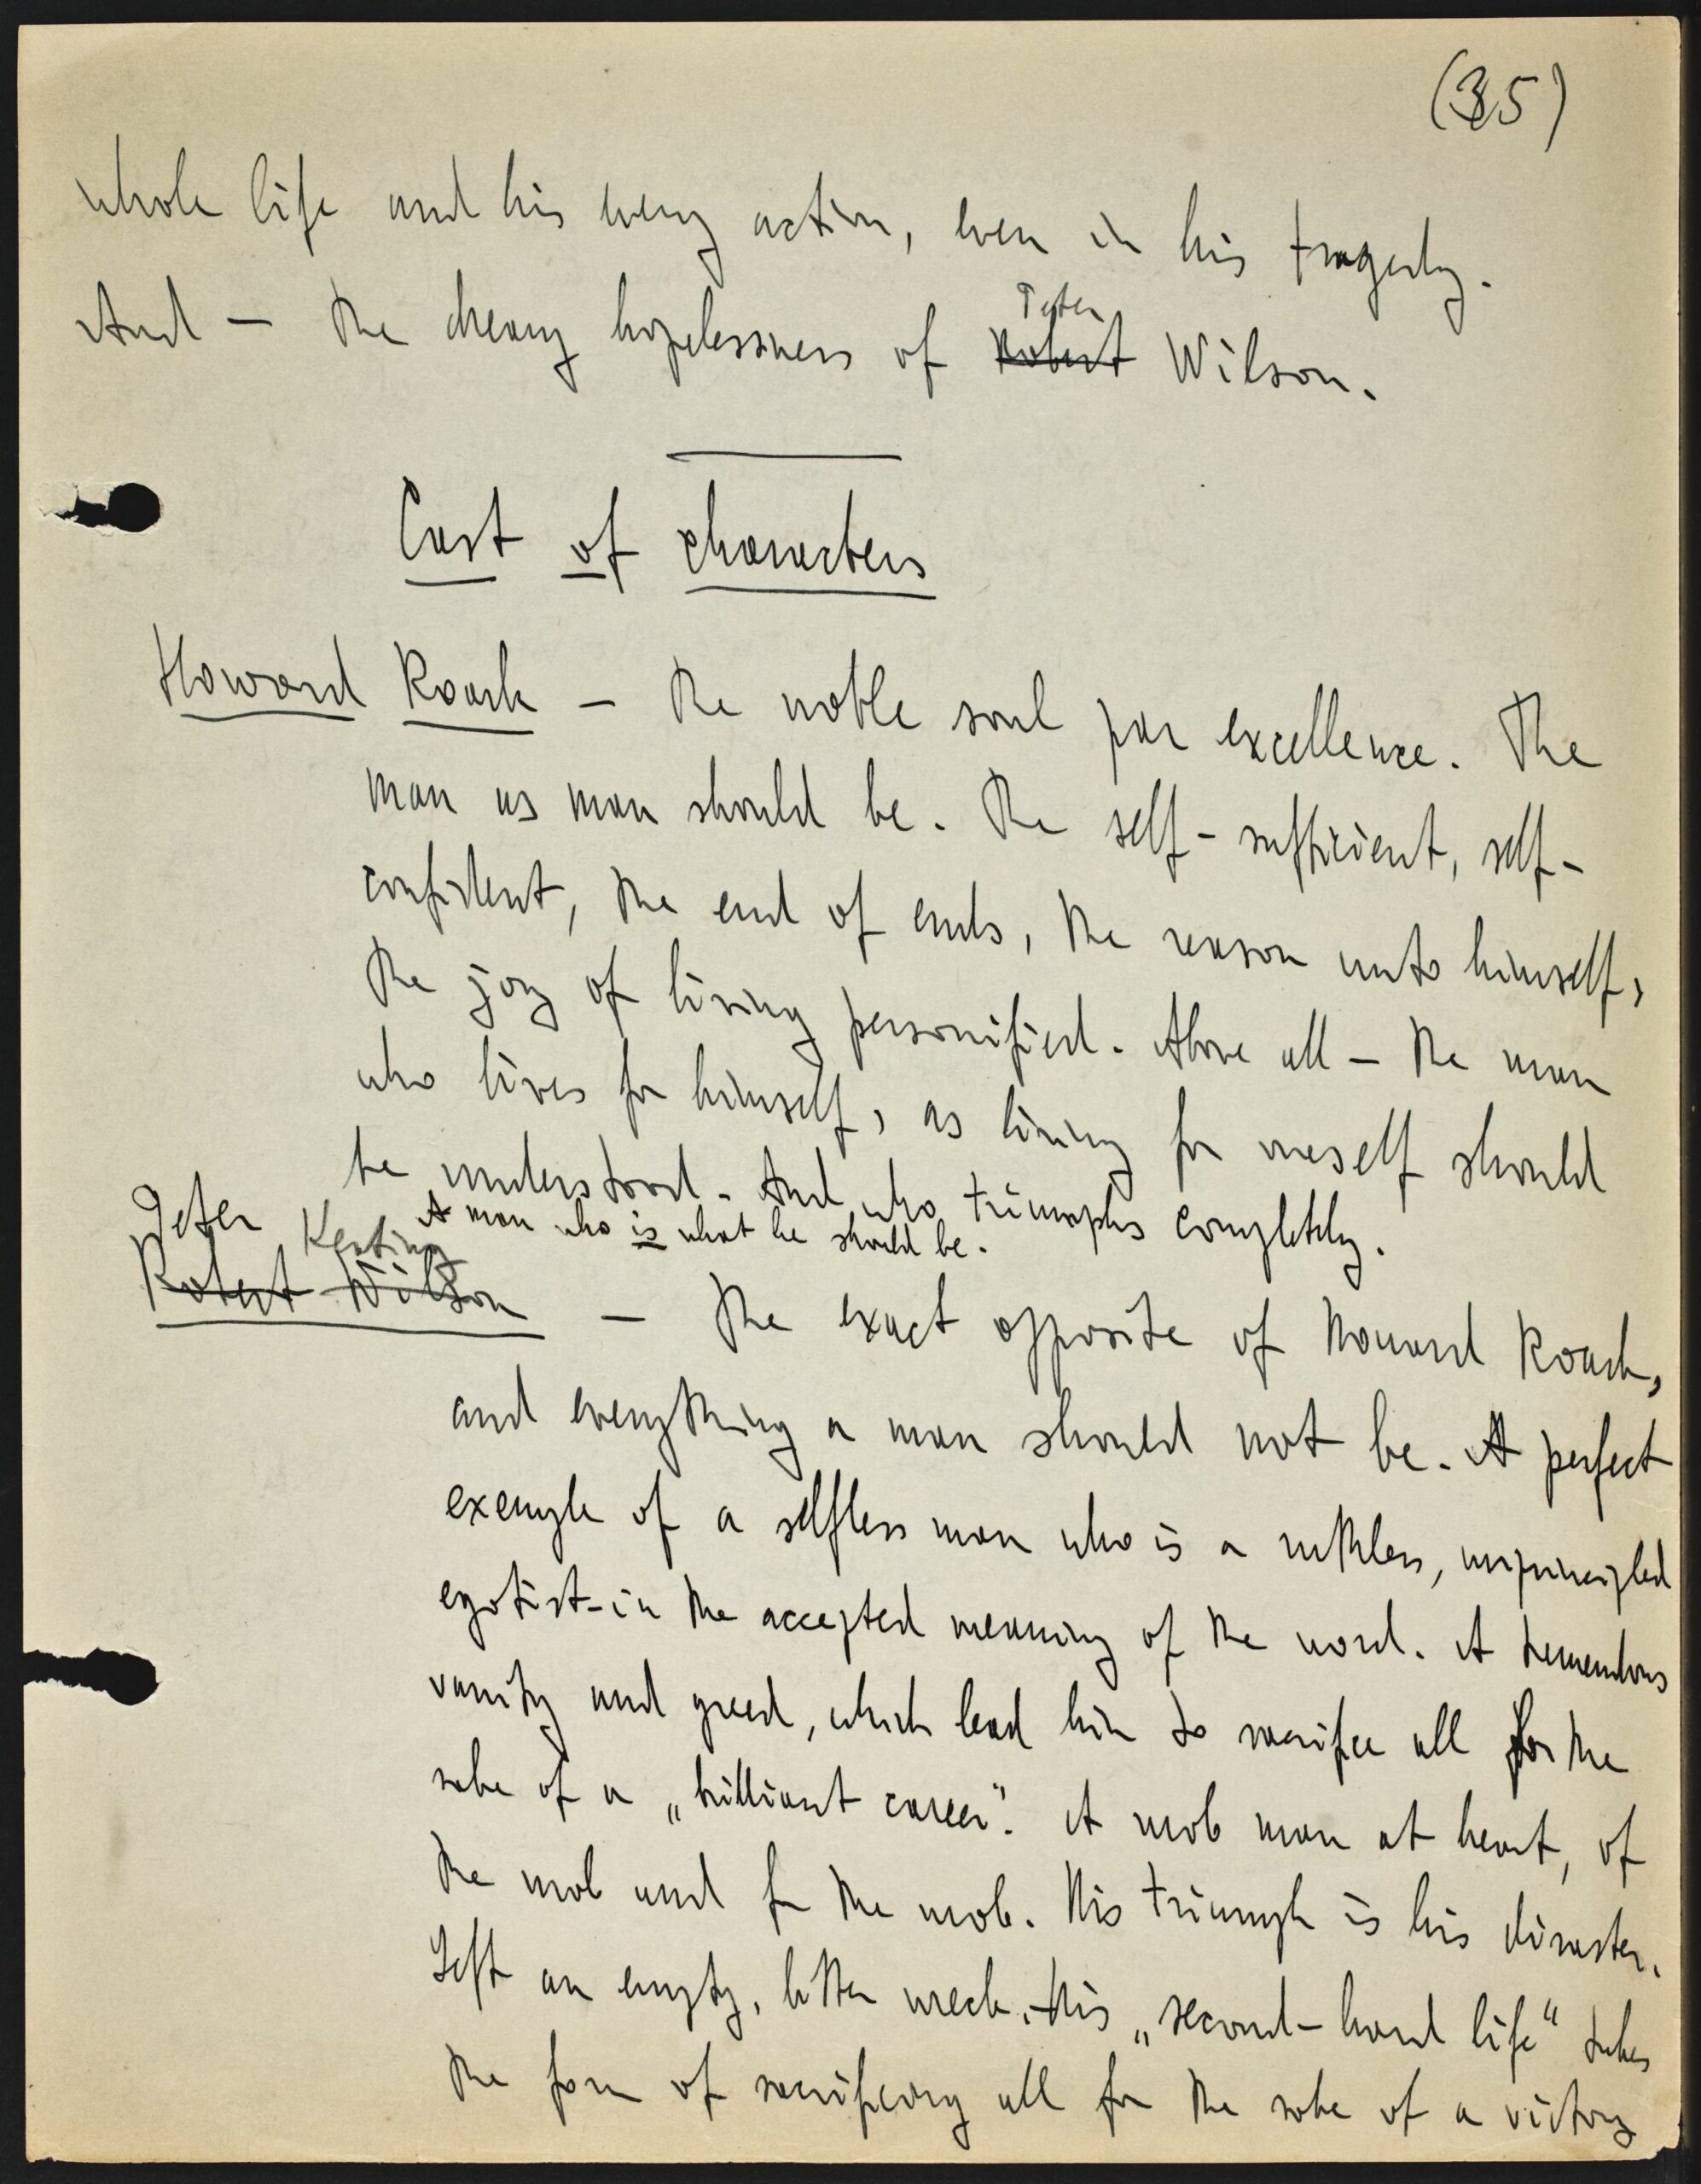 (35)
whole life and his every action, even in his tragedy.
Peter
And — the dreary hopelessness of Robert Wilson.
Cast of characters
Howard Roark — The noble soul par excellence. The
man as man should be. The self-sufficient, self-
confident, the end of ends, the reason unto himself,
the joy of living personified. Above all — the man
who lives for himself, as living for oneself should
be understood. And who triumphs completely.
A man who is what he should be.
Peter Keating
Robert Wilson — The exact opposite of Howard Roark,
and everything a man should not be. A perfect
example of a selfless man who is a ruthless, unprincipled
egotist-in the accepted meaning of the word. A tremendous
vanity and greed, which lead him to sacrifice all for the
sake of a „brilliant career". A mob man at heart, of
the mob and for the mob. His triumph is his disaster.
Left an empty, bitter wreck. His „second-hand life" takes
the form of sacrificing all for the sake of a victory